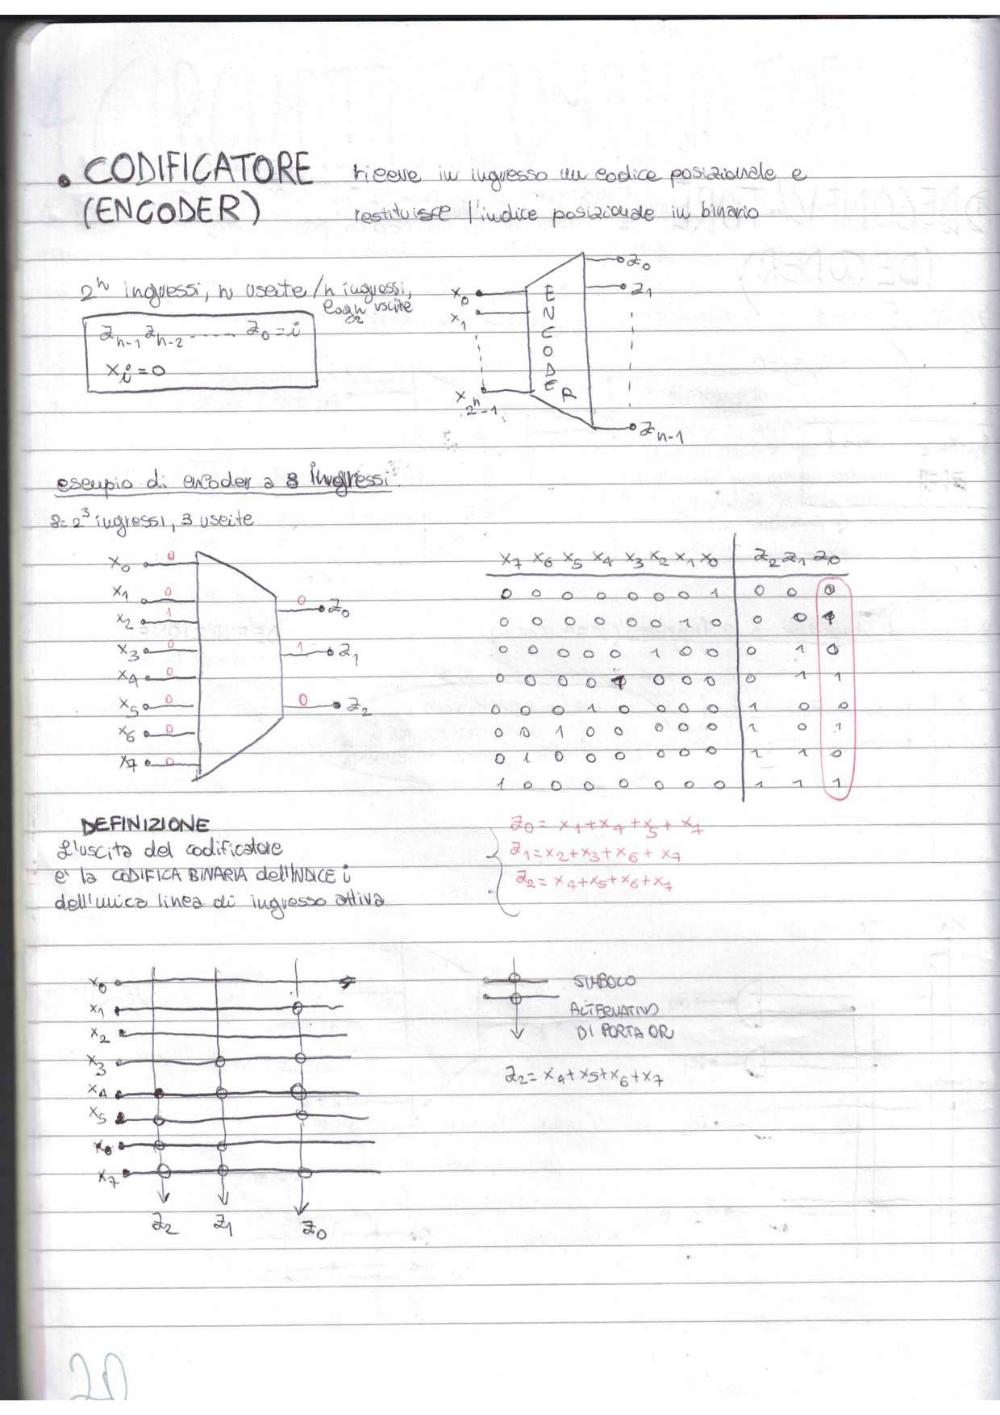 • CODIFICATORE riceve in ingresso un codice posizionale e
(ENCODER) restituisce l'indice posizionale in binario
2^n ingressi, n uscite / n ingressi,
log2n uscite
Z_{n-1} Z_{n-2} ------ Z_0 = i
X_i = 0
X_0
X_1
X_{2^n-1}
ENCODER
Z_0
Z_1
Z_{n-1}
esempio di encoder a 8 ingressi
8=2^3 ingressi, 3 uscite
X_0 0
X_1 0
X_2 1
X_3 0
X_4 0
X_5 0
X_6 0
X_7 0
0 Z_0
1 Z_1
0 Z_2
X_7 X_6 X_5 X_4 X_3 X_2 X_1 X_0 Z_2 Z_1 Z_0
0 0 0 0 0 0 0 1 0 0 0
0 0 0 0 0 0 1 0 0 0 1
0 0 0 0 0 1 0 0 0 1 0
0 0 0 0 1 0 0 0 0 1 1
0 0 0 1 0 0 0 0 1 0 0
0 0 1 0 0 0 0 0 1 0 1
0 1 0 0 0 0 0 0 1 1 0
1 0 0 0 0 0 0 0 1 1 1
DEFINIZIONE
L'uscita del codificatore
e' la CODIFICA BINARIA dell'INDICE i
dell'unica linea di ingresso attiva
Z_0 = X_1+X_4+X_5+X_7
Z_1=X_2+X_3+X_6+X_7
Z_2= X_4+X_5+X_6+X_7
X_0
X_1
X_2
X_3
X_4
X_5
X_6
X_7
Z_2 Z_1 Z_0
SIMBOLO
ALTERNATIVO
DI PORTA OR
Z_2= X_4+X_5+X_6+X_7
20